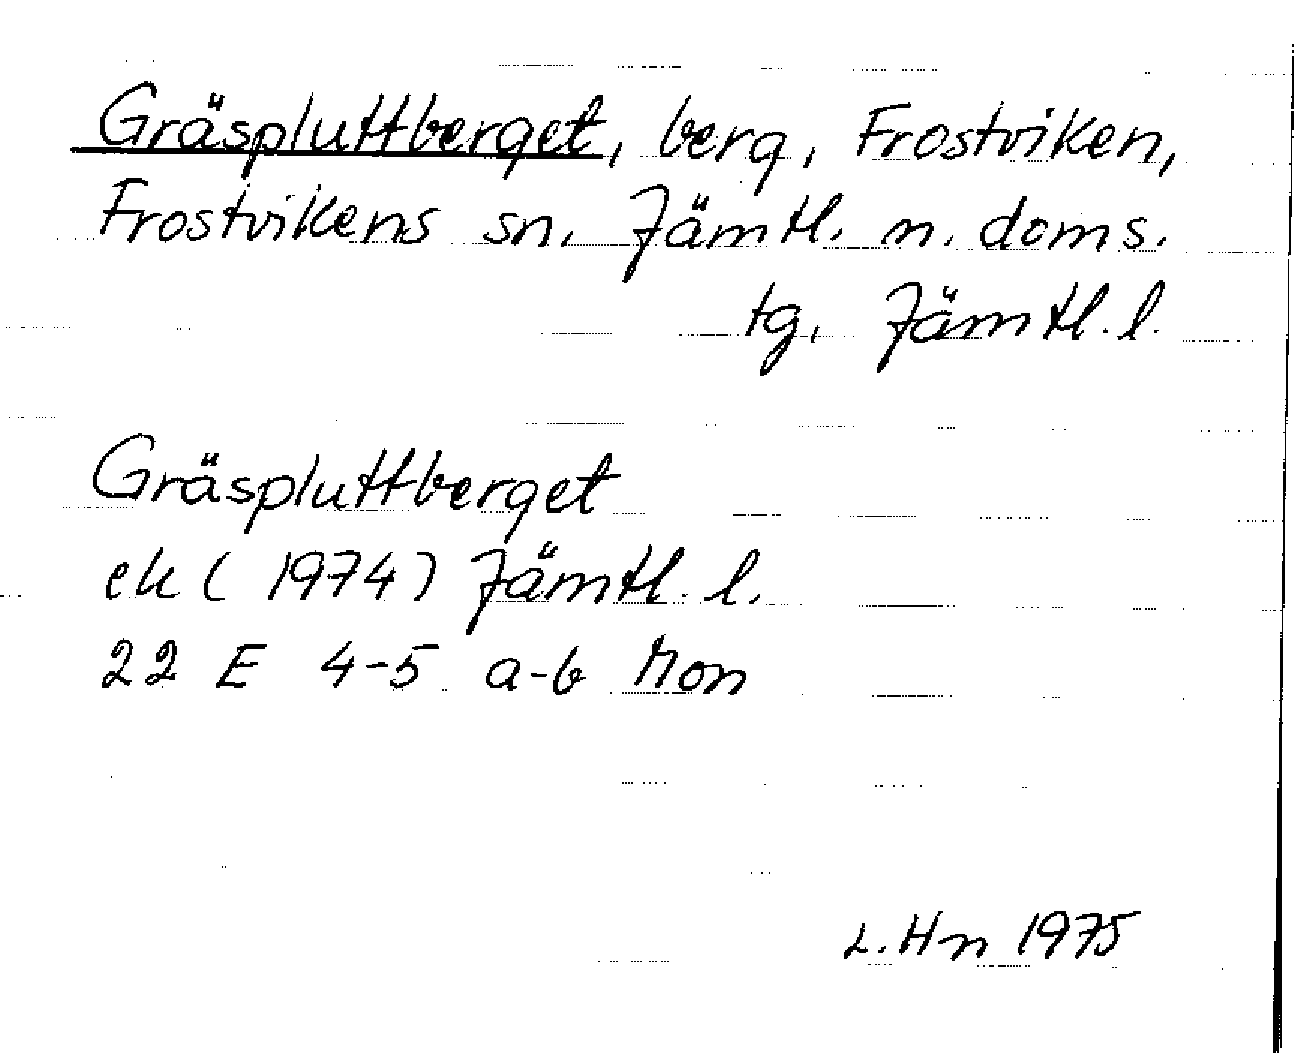 Gräspluttberget, berg, Frostviken,
Frostvikens sn. Jämtl. n. doms.
tg. Jämtl. l.
Gräspluttberget
ek (1974) Jämtl. l.
22 E 4-5 a-b Mon
L. Hn 1975